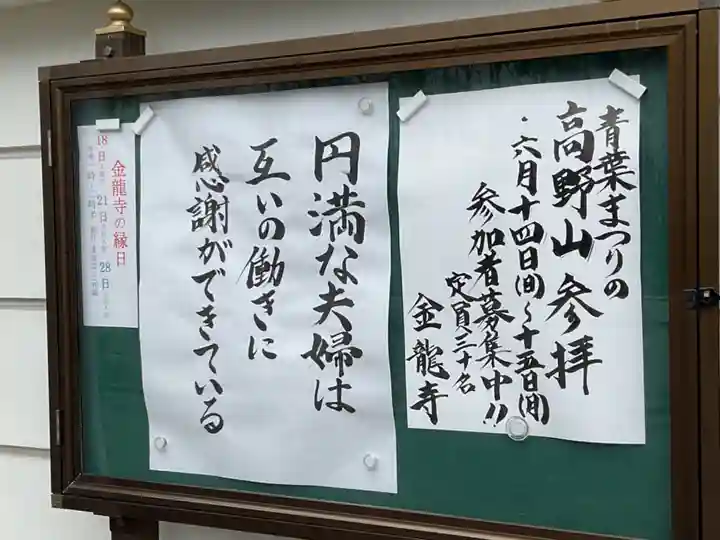 青葉まつりの
高野山参拝
・六月十四日(日)〜十五日(月)
参加者募集中!!
定員三十名
金龍寺
円満な夫婦は
互いの働きに
感謝ができている
金龍寺の縁日
18日
21日
28日